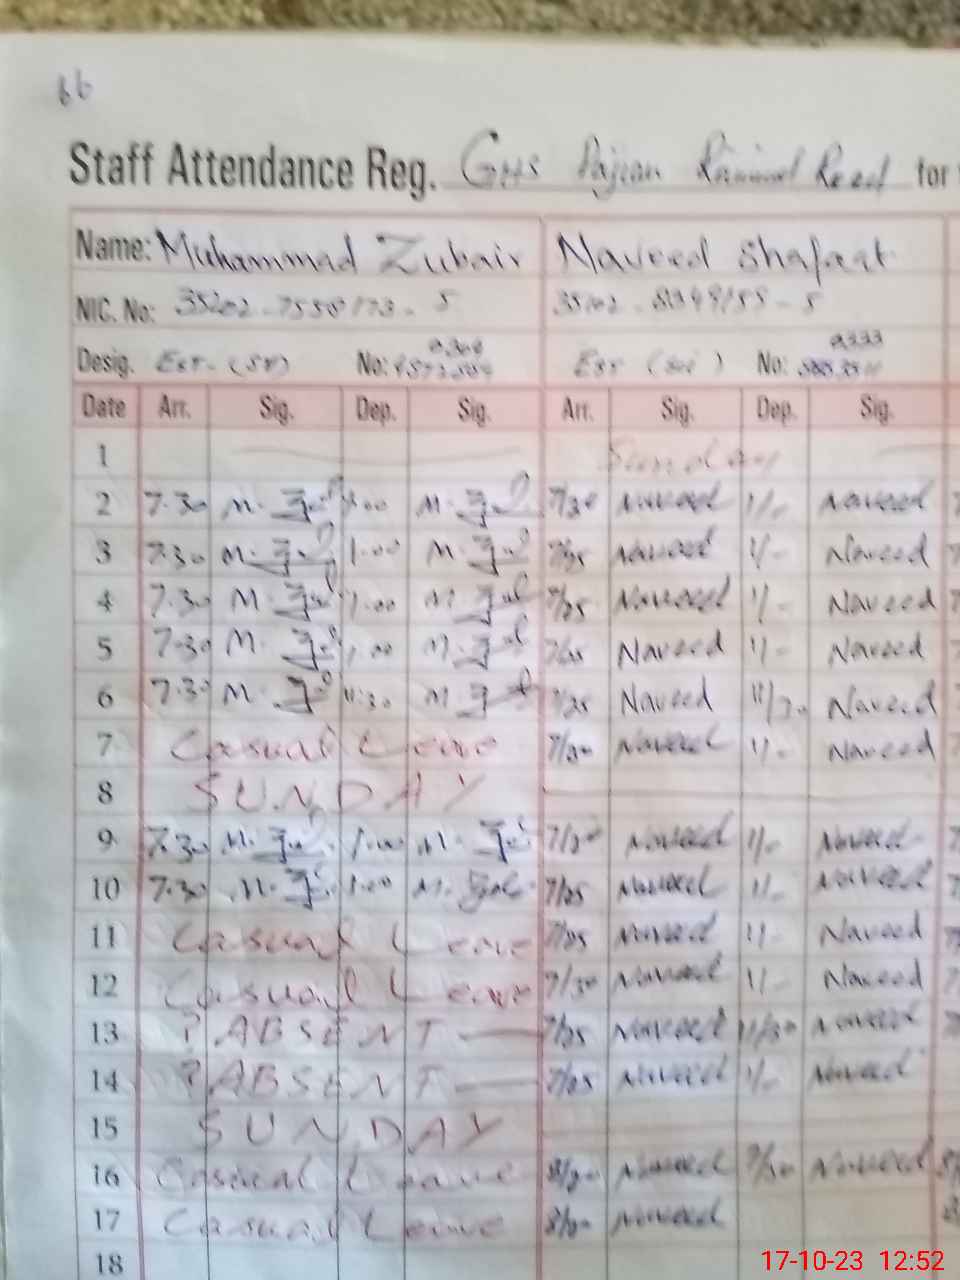 66
Staff Attendance Reg. GHS Pajian Raiwind Road for
Name: Muhammad Zubair Naveed Shafaat
NIC. No: 35202-7550173-5 35102-8349155-5
Desig. Est. No: Est No:
Date Arr. Sig. Dep. Sig. Arr. Sig. Dep. Sig.
1 Sunday
2 7.30 M. 1.00 M. 7/30 Naveed 1/- Naveed
3 7.30 M. 1.00 M. 7/25 Naveed 1/- Naveed
4 7.30 M. 1.00 M. 7/25 Naveed 1/- Naveed
5 7.30 M. 1.00 M. 7/25 Naveed 1/- Naveed
6 7.30 M. 11:30 M. 7/25 Naveed 11/30 Naveed
7 Casual Leave 7/30 Naveed 1/- Naveed
8 SUNDAY
9 7.30 M. 1.00 M. 7/30 Naveed 1/- Naveed
10 7.30 M. 1.00 M. 7/25 Naveed 1/- Naveed
11 Casual Leave 7/25 Naveed 1/- Naveed
12 Casual Leave 7/30 Naveed 1/- Naveed
13 ? ABSENT — 7/25 Naveed 11/30 Naveed
14 ? ABSENT — 7/25 Naveed 1/- Naveed
15 SUNDAY
16 Casual Leave 8/30 Naveed 2/30 Naveed
17 Casual Leave 8/30 Naveed
18
17-10-23 12:52